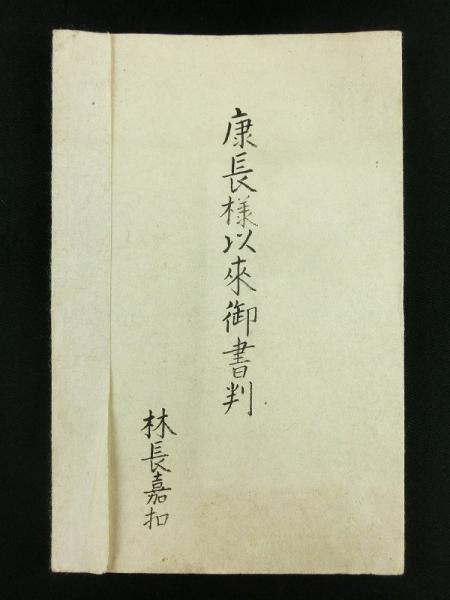 康長様以來御書判
林長嘉扣